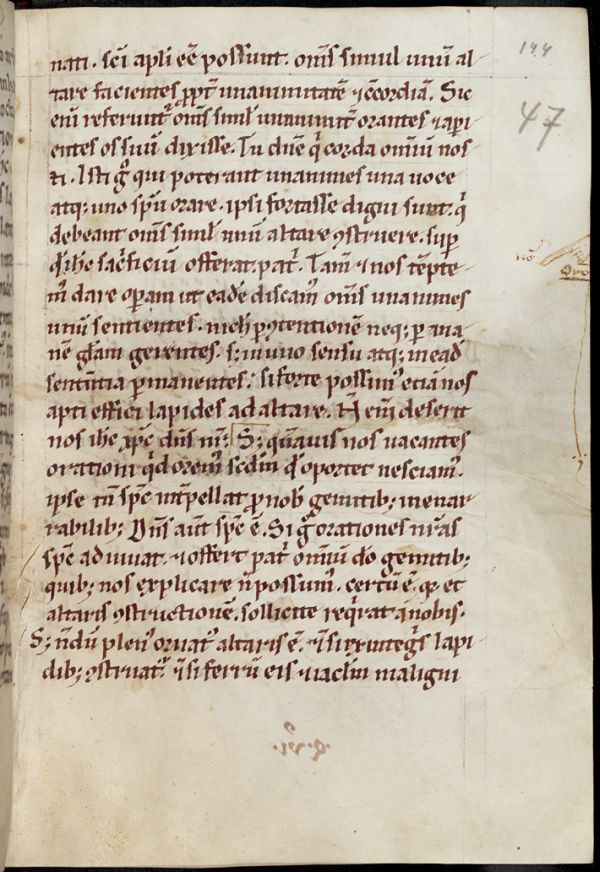 nati. sci apli eē possunt. oms simul unū al-
tare facientes ꝓpt̄ unanimitatē ⁊ c̄cordiā. Sic
enī referunt̄ oms simł unanimit̄ orantes ⁊ aperi-
entes os suū dixisse. Tu dn̄e q̄ corda omiū nos-
ti. Isti gͦ qui poterant unanimes una uoce
atq; uno spū orare. ipsi fortasse digni sunt. q̄
debeant oms simł unū altare ꝯstruere. sup̄
qͦ ihc sac̄ficiū offerat pat̄. Tam̄ ⁊ nos tēpte-
m᷒ dare oꝑam ut eadē discam᷒ oms unanimes
unū sentientes. nichͥ ꝑ ꝯtentionē neq; ꝑ ina-
nē głam gerentes. s; in uno sensu atq; in ead
sententia ꝑmanentes. si forte possim᷒ etiā nos
apti effici lapides ad altare. N̄ enī deserit
nos ihc xp̄c dn̄s nr̄. S; quāuis nos uacantes
orationi qͥd orem᷒ scdm̄ qͩ oportet nesciam᷒.
ipse tn̄ spc̄ int̄pellat ꝓ nob̄ gemitib; inenar-
rabilib; Dn̄s aut̄ spc̄ ē. Si gͦ orationes nr̄as
spc̄ adiuuat. ⁊ offert pat̄ omiū do gemitib;
quib; nos explicare n̄ possum᷒. certū ē. qͩ et
altaris ꝯstructionē. sollicite reqͥrat a nobis.
S; n̄dū plen᷒ ornat᷒ altaris ē. n̄ si ex integͥs lapi-
dib; ꝯstruat᷒. n̄ si ferrū eis ⁊ iaclm̄ maligni
144
47